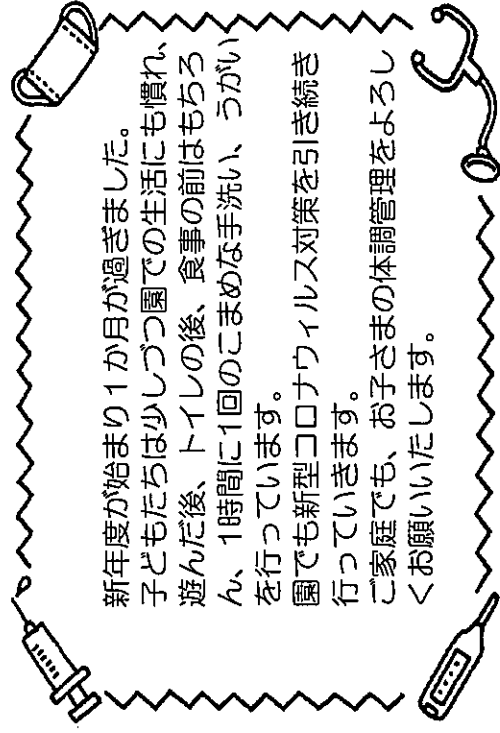 新年度が始まり1か月が過ぎました。
子どもたちは少しづつ園での生活にも慣れ、
遊んだ後、トイレの後、食事の前はもちろ
ん、1時間に1回のこまめな手洗い、うがい
を行っています。
園でも新型コロナウィルス対策を引き続き
行っていきます。
ご家庭でも、お子さまの体調管理をよろし
くお願いいたします。